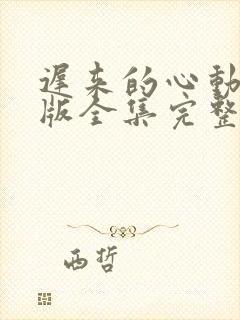 遲來的心動
版全集完整
西哲